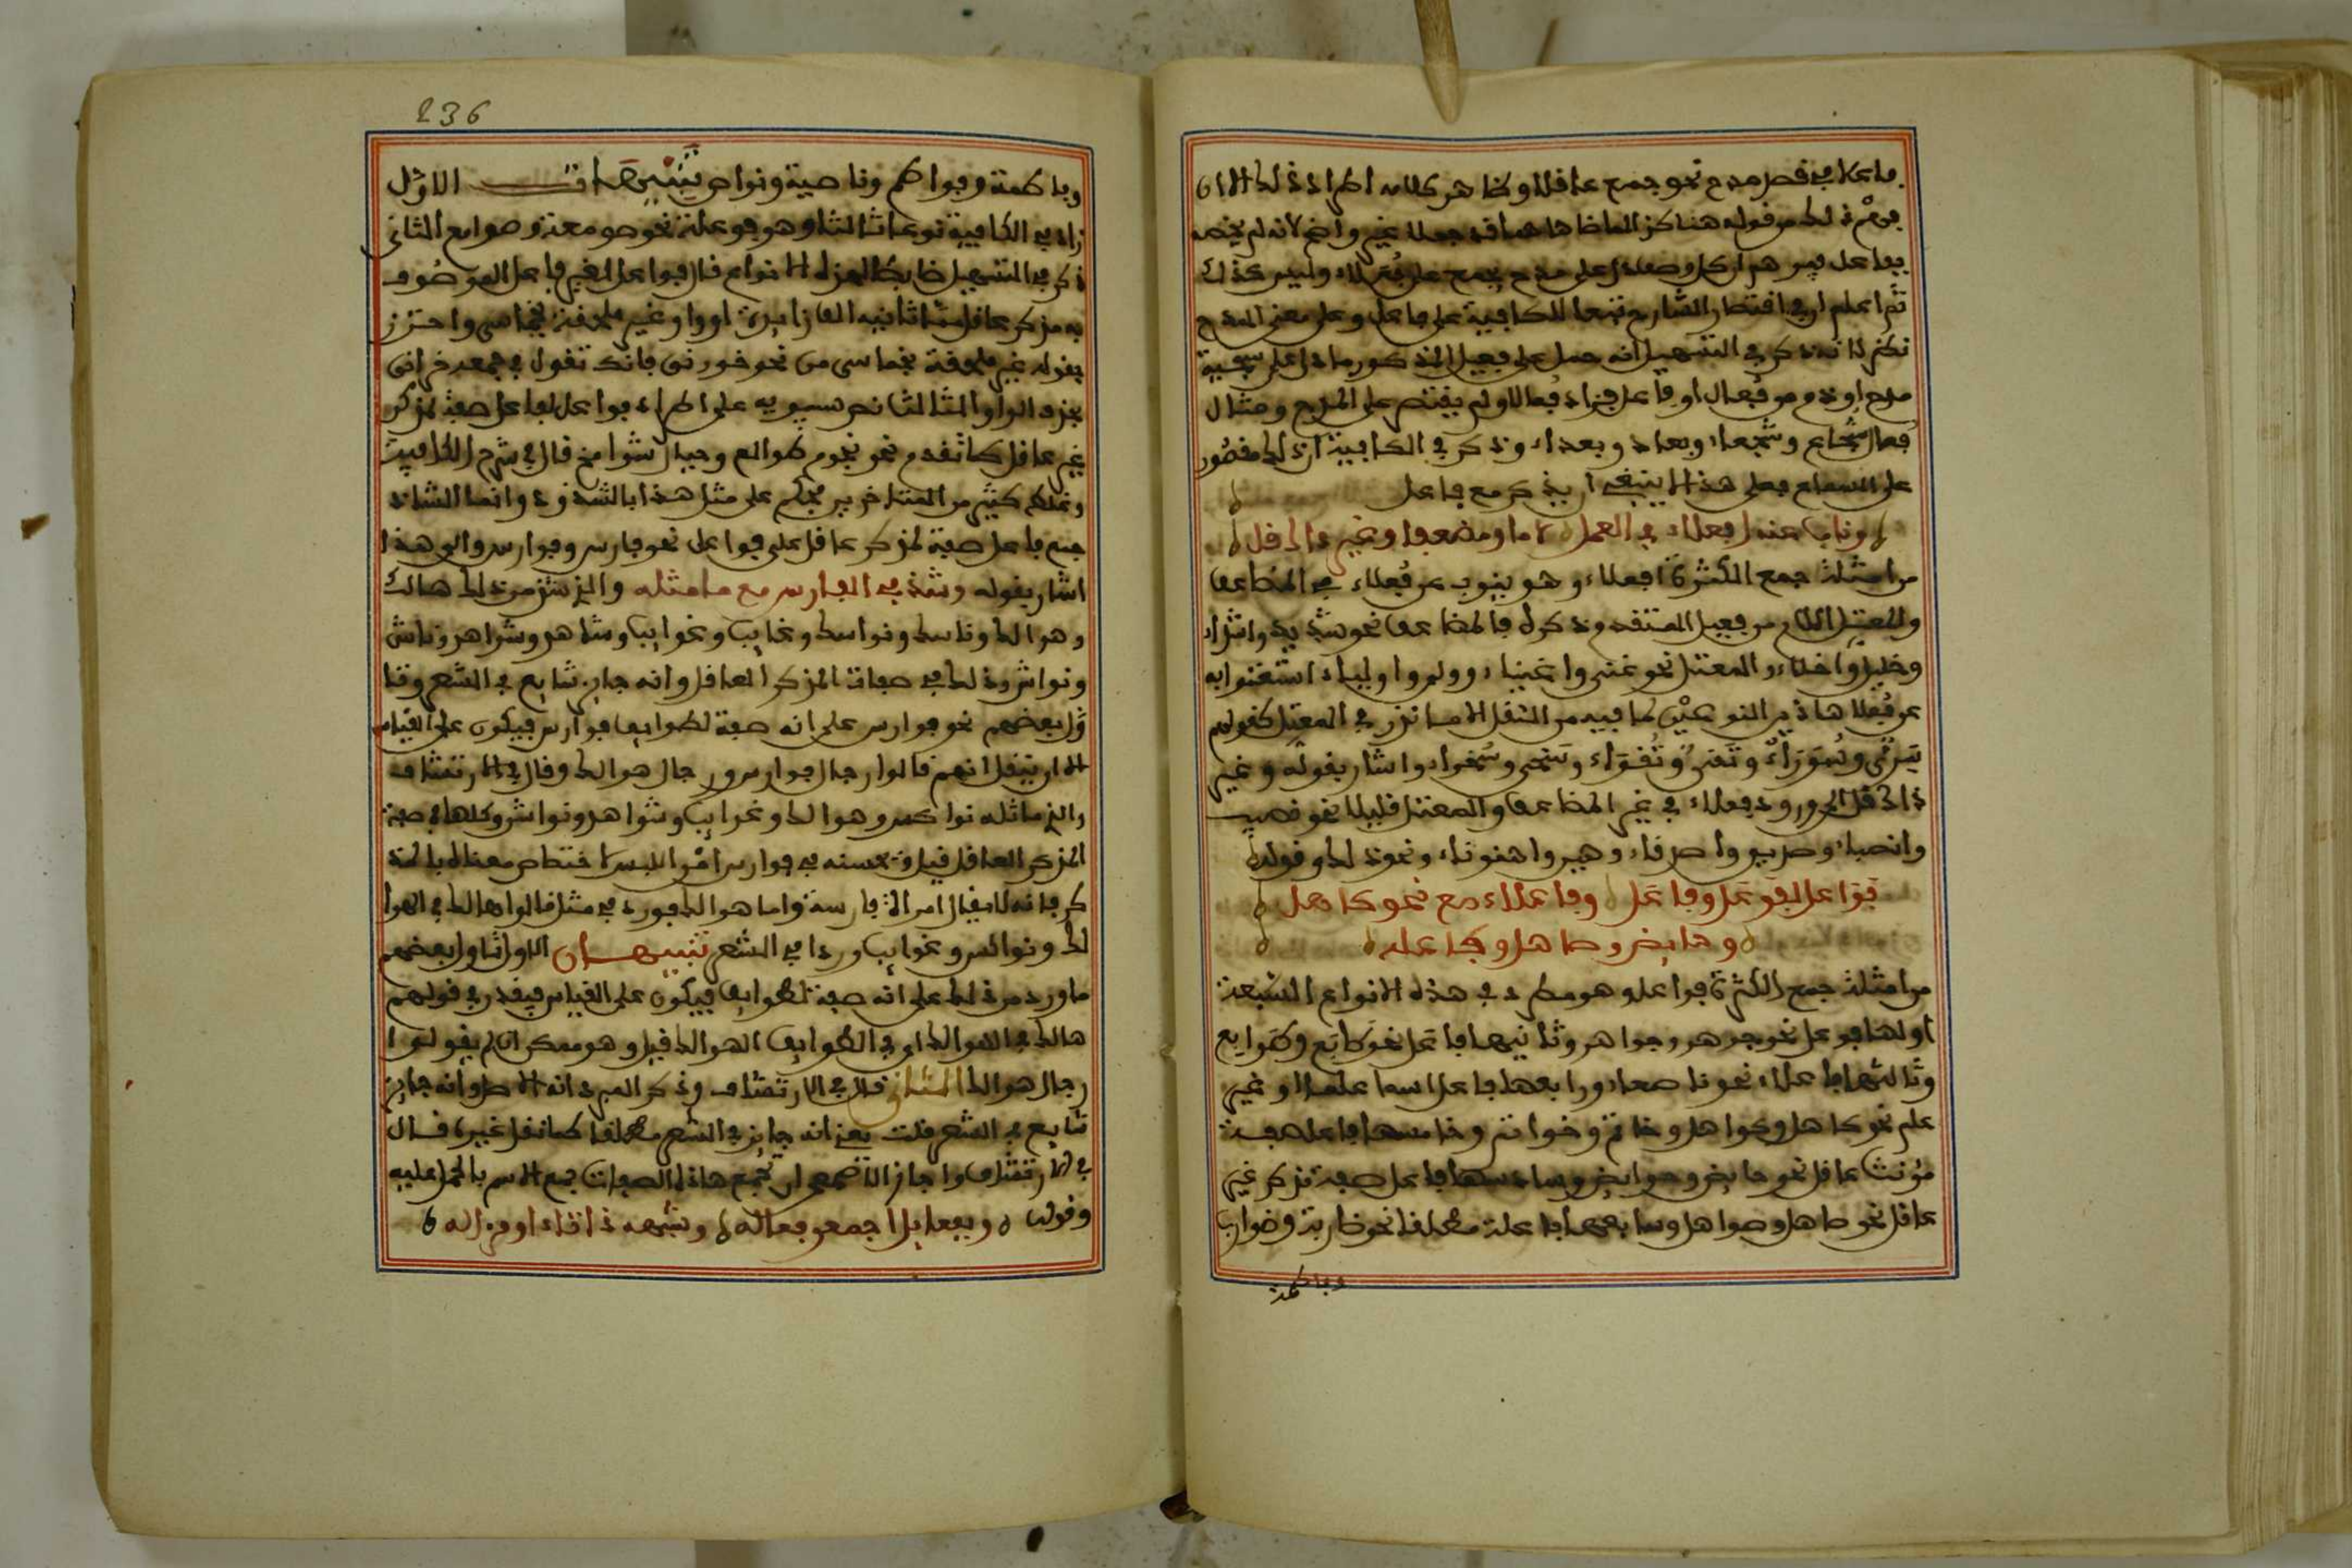 ما علا في قصر مدح نحو جمع عاقلا وظاهر كلامه اطراد ذلك الا ان
ثم اعلم ان في اقتصار الشارح تبعا للكافية على فاعل وعلى معنى المدح
نظر لانه ذكر في التسهيل انه حمل على فعيل المذكور ما دل على سجية
مدح او ذم من فعال او فاعل فزاد فعالا ولم يقتصر على المدح ومثال
فعال شجاع وشجعاء وبعاد وبعداء وذكر في الكافية ان ذلك مقصور
على السماع فعلى هذا لا ينبغي ان يذكر مع فاعل
وناب عنه افعلاء في المعل لاما ومضعف وغير ذاك قل
من امثلة جمع الكثرة افعلاء وهو ينوب عن فعلاء في المضاعف
والمعتل اللام من فعيل المتقدم ذكره فالمضاعف نحو شديد واشداء
وخليل واخلاء والمعتل نحو غني واغنياء وولي واولياء استغنوا به
عن فعلا هاذين النوعين لما فيه من الثقل الا ما نذر في المعتل كقولهم
سري وسرواء وتقي وتقواء وسخي وسخواء واشار بقوله وغير
ذاك قل الى ورود فعلاء في غير المضاعف والمعتل قليلا نحو نصيب
وانصباء وصديق واصدقاء وهين واهوناء ونحو ذلك وقوله
فواعل لفوعل وفاعل وفاعلاء مع نحو كاهل
وحايض وصاهل وفاعله
من امثلة جمع الكثرة فواعل وهو مطرد في هذه الانواع السبعة
اولها فوعل نحو جوهر وجواهر وثانيها فاعل نحو طابع وطوابع
وثالثها فاعلاء نحو قاصعاء ورابعها فاعل اسما علما او غير
علم نحو كاهل وكواهل وخاتم وخواتم وخامسها فاعل صفة
مؤنث عاقل نحو حايض وحوايض وسادسها فاعل صفة مذكر غير
عاقل نحو صاهل وصواهل وسابعها فاعلة مطلقا نحو ضاربة وضوارب
وفاطمة
236
وفاطمة وفواطم وناصية ونواص تنبيهات الاول
زاد في الكافية نوعا ثالثا وهو فوعلة نحو صومعة وصوامع الثاني
ذكر في التسهيل ضابطا لهذه الانواع فقال فواعل لغير فاعل الموصوف
به مذكر عاقل مما ثانيه الف زايدة او واو غير ملحقة بخماسي واحترز
بقوله غير ملحقة بخماسي من نحو خورنق فانك تقول في جمعه خرانق
بحذف الواو الثالث نص سيبويه على اطراد فواعل لفاعل صفة لمذكر
غير عاقل كما تقدم نحو نجوم طوالع وجبال شوامخ قال في شرح الكافية
وغلط كثير من المتاخرين فحكم على مثل هذا بالشذوذ وانما الشاذ
جمع فاعل صفة لمذكر عاقل على فواعل نحو فارس وفوارس والى هذا
اشار بقوله وشذ في الفارس مع ما ماثله والذي شذ من ذلك هالك
وهوالك وناسك ونواسك وغايب وغوايب وشاهد وشواهد وناش
ونواش وذلك في صفات المذكر العاقل وانه جار شايع في الشعر وتا
ول بعضهم نحو فوارس على انه صفة لطوايف فوارس فيكون على القياس
الا ان ينقل انهم قالوا رجال فوارس ورجال هوالك وقال في الارتشاف
والذي ماثله نواكس وهوالك وغوايب وشواهد ونواش وكلها في صفة
المذكر العاقل قيل وحسنه في فوارس امن اللبس لاختصاص معناه بالمذ
كر فانه لا يقال امراة فارسة واما هوالك فورد في مثل قالوا هالك في الهوا
لك ونواكس وغوايب وردا في الشعر تنبيهان الاول تاول بعضهم
ما ورد من ذلك على انه صفة لطوايف فيكون على القياس فيقدر في قولهم
هالك في الهوالك اي في الطوايف الهوالك قيل وهو ممكن ان لم يقولوا
رجال هوالك الثاني قال في الارتشاف وذكر المبرد انه الاصل وانه جايز
شايع في الشعر قلت يعني انه جايز في الشعر مطلقا كما نقل غيره قال
في الارتشاف واجاز الاصمعي ان تجمع هاذه الصفات جمع الاسم بالحمل عليه
وقوله وبفعايل اجمعن فعاله وشبهه ذا تاء او مزاله